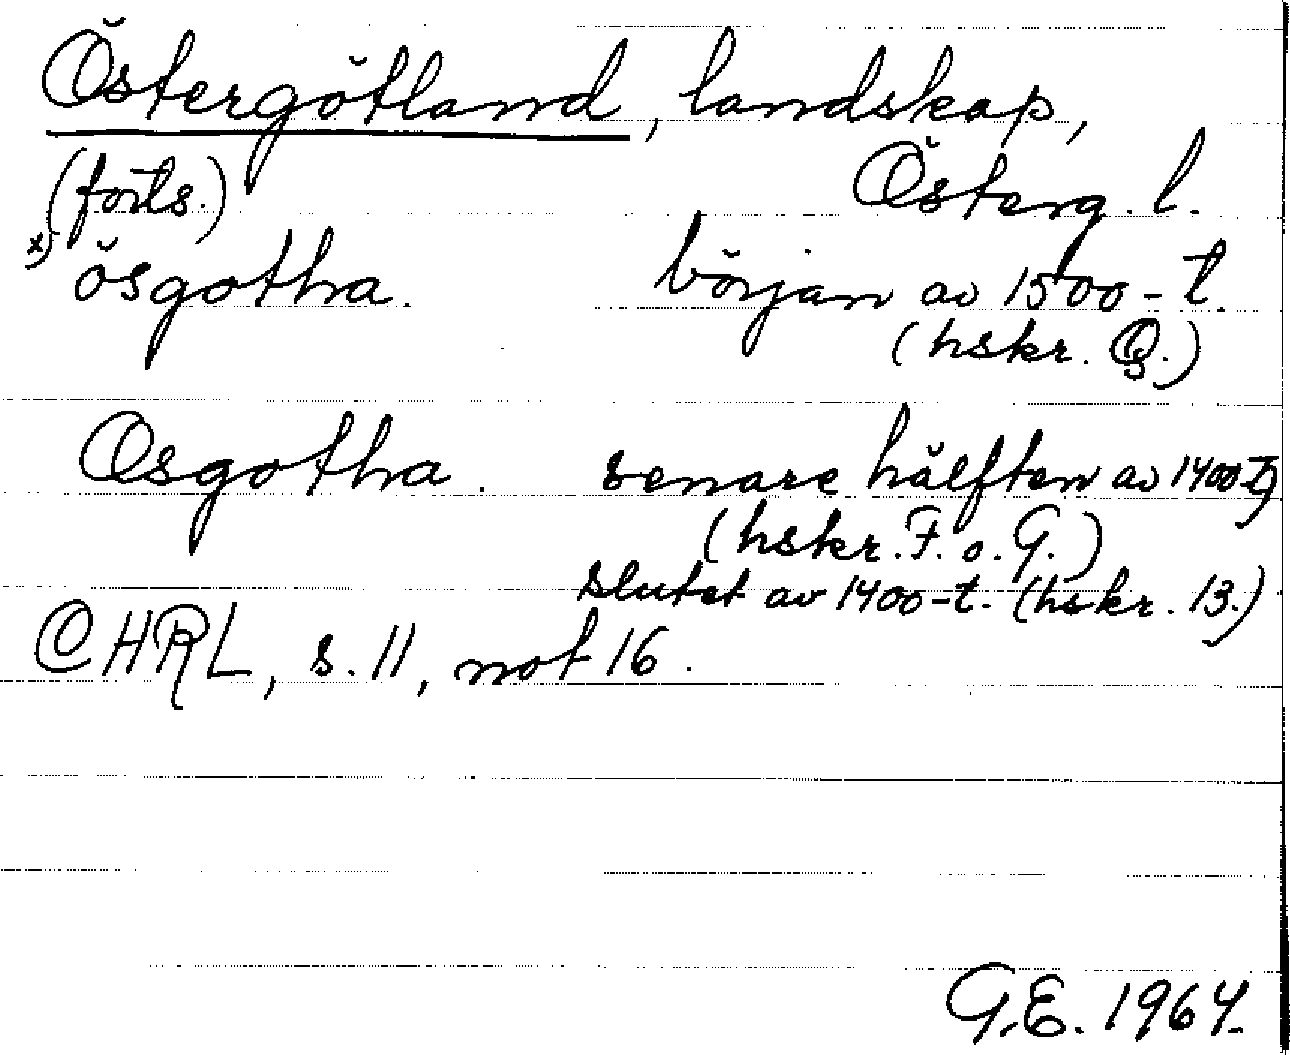 Östergötland, landskap,
(forts.) Österg. l.
x) ösgotha. början av 1500-t.
(hskr. Q.)
Osgotha. senare hälften av 1400-t.
(hskr. F. o. G.)
slutet av 1400-t. (hskr. 13.)
CHRL, s. 11, not 16.
G.E. 1964.